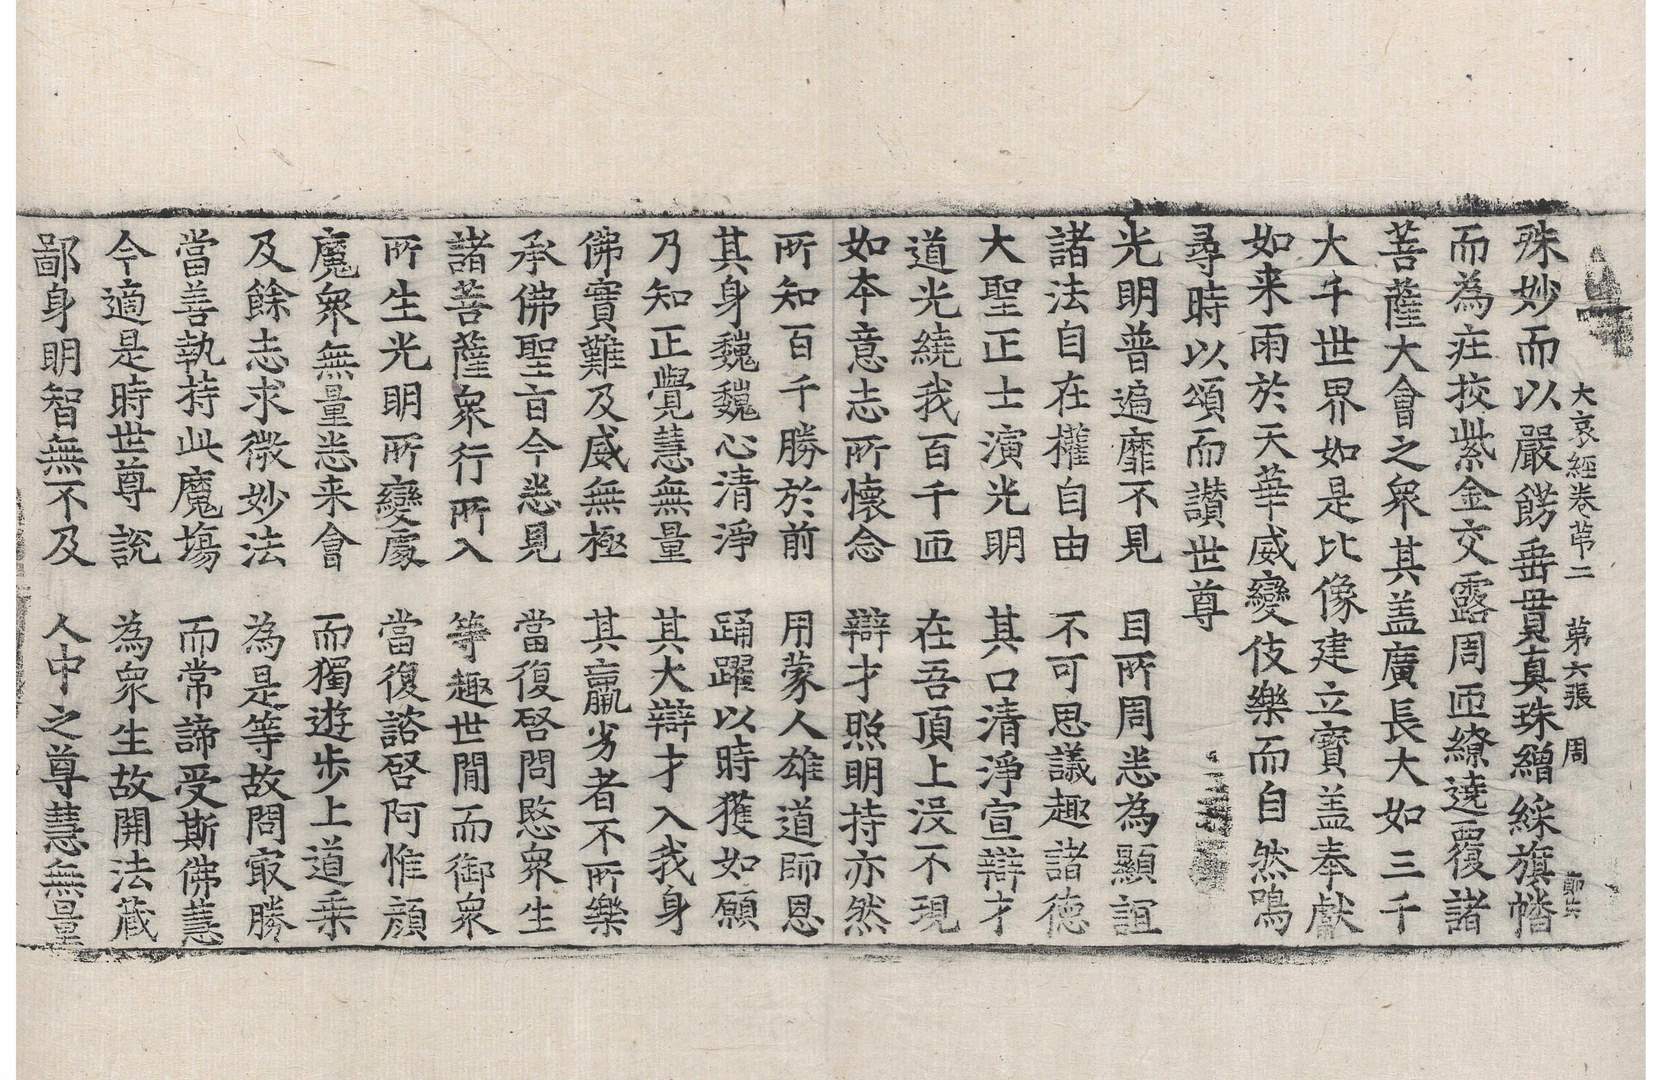 大哀經卷第二　第六張　周
殊妙而以嚴餝垂貫真珠繒綵旗幡
而為疘挍紫金交露周帀繚遶覆諸
菩薩大會之衆其盖廣長大如三千
大千世界如是比像建立寳盖奉獻
如来雨於天華威變伎樂而自然鳴
尋時以頌而讃世尊
光明普遍靡不見　目所周悉為顯誼
諸法自在權自由　不可思議趣諸德
大聖正士演光明　其口清淨宣辯才
道光繞我百千帀　在吾頂上没不現
如本意志所懷念　辯才照明持亦然
所知百千勝於前　用蒙人雄道師恩
其身魏魏心清淨　踊躍以時獲如願
乃知正覺慧無量　其大辯才入我身
佛實難及威無極　其羸劣者不所樂
承佛聖旨今悉見　當復啓問愍衆生
諸菩薩衆行所入　等趣世間而御衆
所生光明所變處　當復諮啓阿惟顔
魔衆無量悉来會　而獨遊步上道乗
及餘志求微妙法　為是等故問㝡勝
當善執持此魔塲　而常諦受斯佛慧
今適是時世尊説　為衆生故開法藏
鄙身明智無不及　人中之尊慧無量